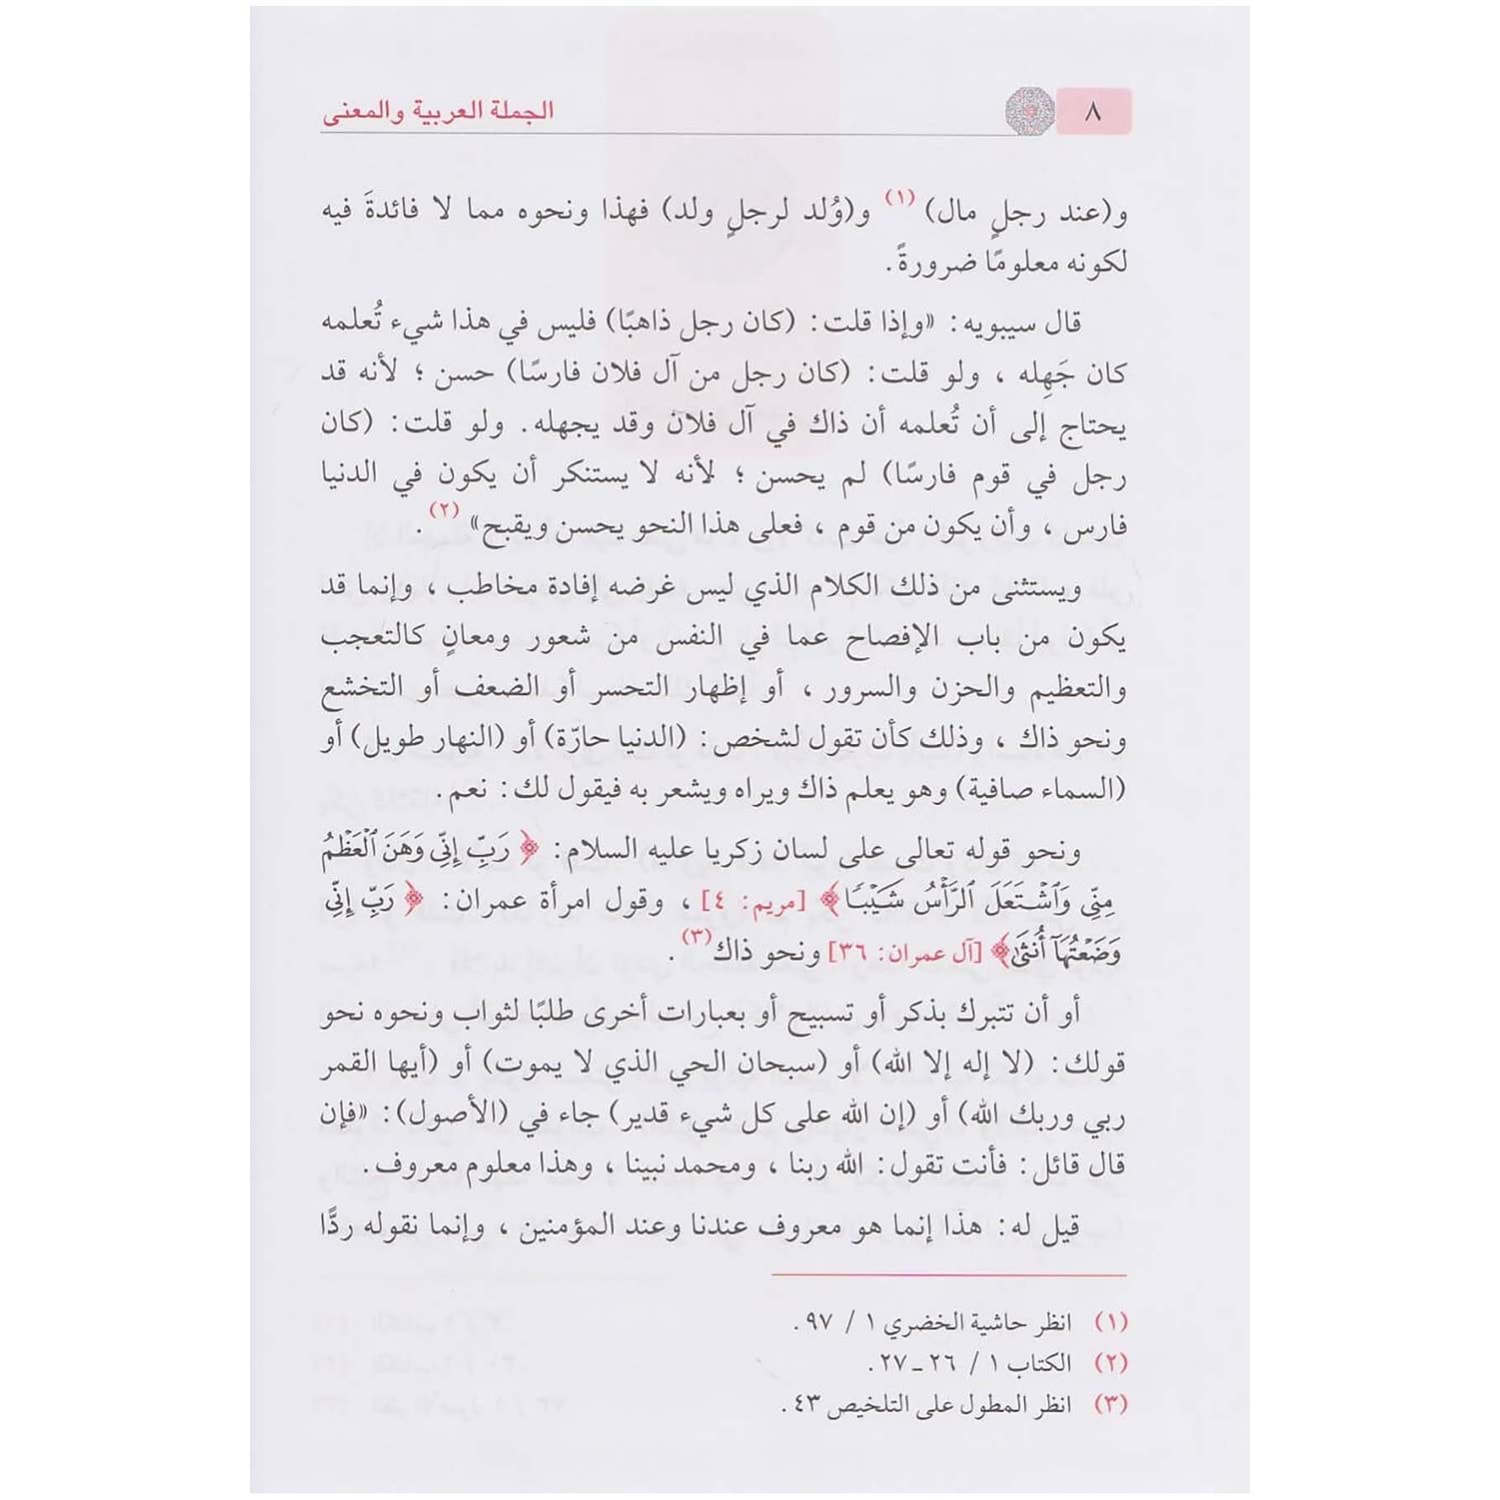 ٨
الجملة العربية والمعنى
و(عند رجلٍ مال) (١) و(وُلد لرجلٍ ولد) فهذا ونحوه مما لا فائدةَ فيه
لكونه معلومًا ضرورةً.
قال سيبويه: «وإذا قلت: (كان رجل ذاهبًا) فليس في هذا شيء تُعلمه
كان جَهِله ، ولو قلت: (كان رجل من آل فلان فارسًا) حسن ؛ لأنه قد
يحتاج إلى أن تُعلمه أن ذاك في آل فلان وقد يجهله. ولو قلت: (كان
رجل في قوم فارسًا) لم يحسن ؛ لأنه لا يستنكر أن يكون في الدنيا
فارس ، وأن يكون من قوم ، فعلى هذا النحو يحسن ويقبح» (٢) .
ويستثنى من ذلك الكلام الذي ليس غرضه إفادة مخاطب ، وإنما قد
يكون من باب الإفصاح عما في النفس من شعور ومعانٍ كالتعجب
والتعظيم والحزن والسرور ، أو إظهار التحسر أو الضعف أو التخشع
ونحو ذاك ، وذلك كأن تقول لشخص: (الدنيا حارّة) أو (النهار طويل) أو
(السماء صافية) وهو يعلم ذاك ويراه ويشعر به فيقول لك: نعم.
ونحو قوله تعالى على لسان زكريا عليه السلام: ﴿ رَبِّ إِنِّي وَهَنَ ٱلۡعَظۡمُ
مِنِّي وَٱشۡتَعَلَ ٱلرَّأۡسُ شَيۡبٗا﴾ [مريم: ٤] ، وقول امرأة عمران: ﴿ رَبِّ إِنِّي
وَضَعۡتُهَآ أُنثَىٰ﴾ [آل عمران: ٣٦] ونحو ذاك(٣) .
أو أن تتبرك بذكر أو تسبيح أو بعبارات أخرى طلبًا لثواب ونحوه نحو
قولك: (لا إله إلا الله) أو (سبحان الحي الذي لا يموت) أو (أيها القمر
ربي وربك الله) أو (إن الله على كل شيء قدير) جاء في (الأصول): «فإن
قال قائل: فأنت تقول: الله ربنا ، ومحمد نبينا ، وهذا معلوم معروف.
قيل له: هذا إنما هو معروف عندنا وعند المؤمنين ، وإنما نقوله ردًّا
(١) انظر حاشية الخضري ١ / ٩٧ .
(٢) الكتاب ١ / ٢٦ ـ ٢٧ .
(٣) انظر المطول على التلخيص ٤٣ .